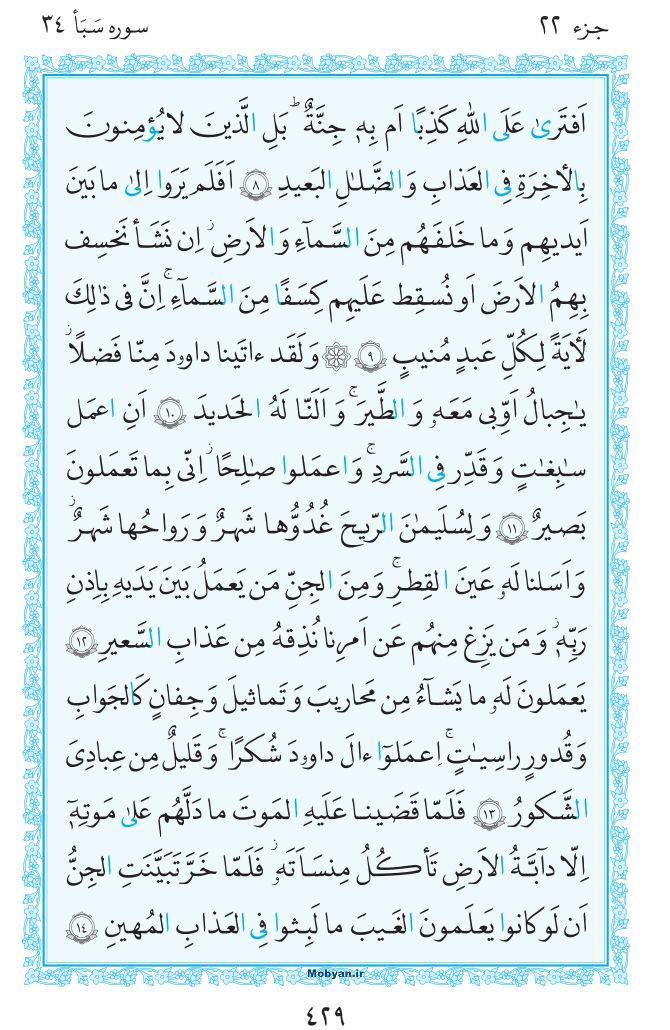 جزء ٢٢
سوره سَبَأ ٣٤
اَفتَرىٰ عَلَى اللّٰهِ كَذِبًا اَم بِهٖ جِنَّةٌ ۗ بَلِ الَّذينَ لا يُؤمِنونَ
بِالآخِرَةِ فِى العَذابِ وَالضَّلٰلِ البَعيدِ ﴿٨﴾ اَفَلَم يَرَوا اِلىٰ ما بَينَ
اَيديهِم وَما خَلفَهُم مِنَ السَّماءِ وَالاَرضِ ۚ اِن نَشَأ نَخسِف
بِهِمُ الاَرضَ اَو نُسقِط عَلَيهِم كِسَفًا مِنَ السَّماءِ ۚ اِنَّ فى ذٰلِكَ
لَآيَةً لِكُلِّ عَبدٍ مُنيبٍ ﴿٩﴾ ۞ وَلَقَد ءاتَينا داوۥدَ مِنّا فَضلًا ۖ
يٰجِبالُ اَوِّبى مَعَهٗ وَالطَّيرَ ۚ وَاَلَنّا لَهُ الحَديدَ ﴿١٠﴾ اَنِ اعمَل
سٰبِغٰتٍ وَقَدِّر فِى السَّردِ ۚ وَاعمَلوا صٰلِحًا ۖ اِنّى بِما تَعمَلونَ
بَصيرٌ ﴿١١﴾ وَلِسُلَيمٰنَ الرّيحَ غُدُوُّها شَهرٌ وَرَواحُها شَهرٌ ۖ
وَاَسَلنا لَهٗ عَينَ القِطرِ ۚ وَمِنَ الجِنِّ مَن يَعمَلُ بَينَ يَدَيهِ بِاِذنِ
رَبِّهٖ ۖ وَمَن يَزِغ مِنهُم عَن اَمرِنا نُذِقهُ مِن عَذابِ السَّعيرِ ﴿١٢﴾
يَعمَلونَ لَهٗ ما يَشاءُ مِن مَحاريبَ وَتَماثيلَ وَجِفانٍ كَالجَوابِ
وَقُدورٍ راسِيٰتٍ ۚ اِعمَلوا ءالَ داوۥدَ شُكرًا ۚ وَقَليلٌ مِن عِبادِىَ
الشَّكورُ ﴿١٣﴾ فَلَمّا قَضَينا عَلَيهِ المَوتَ ما دَلَّهُم عَلىٰ مَوتِهٖ
اِلّا دابَّةُ الاَرضِ تَأكُلُ مِنسَاَتَهٗ ۖ فَلَمّا خَرَّ تَبَيَّنَتِ الجِنُّ
اَن لَو كانوا يَعلَمونَ الغَيبَ ما لَبِثوا فِى العَذابِ المُهينِ ﴿١٤﴾
Mobyan.ir
٤٢٩